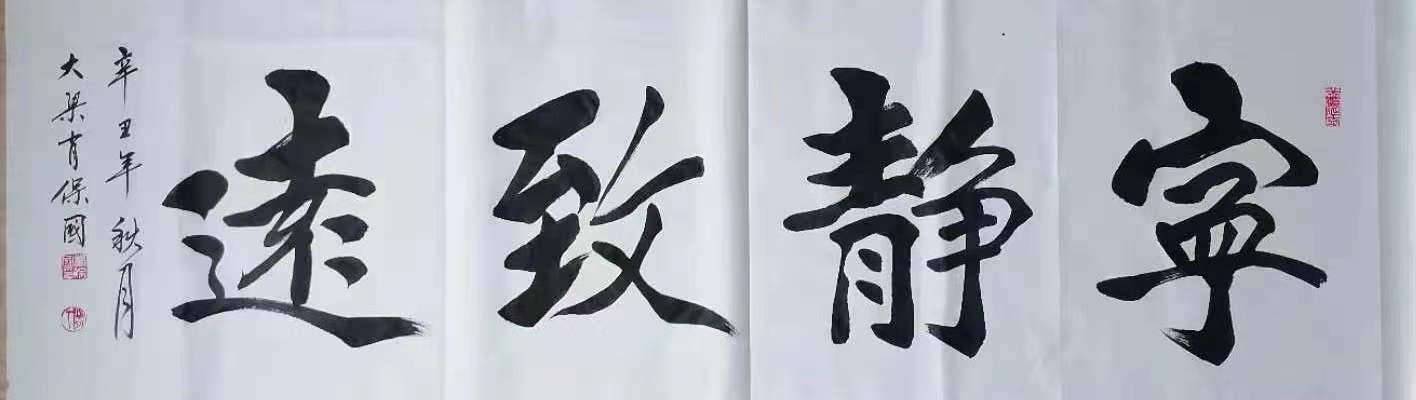 寧静致遠
辛丑年秋月
大梁肖保國